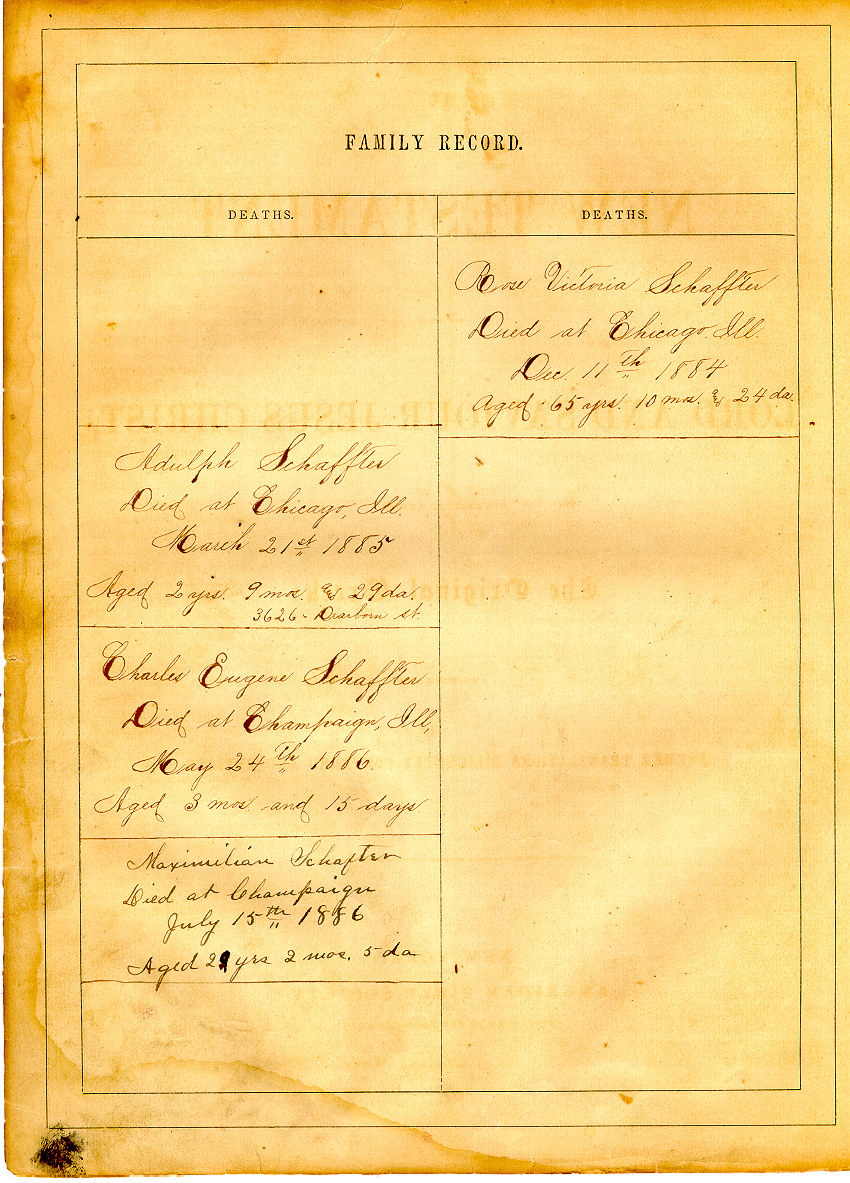 FAMILY RECORD.
DEATHS.
Adulph Schaffter
Died at Chicago, Ill.
March 21st 1885
Aged 2 yrs. 9 mos. and 29 da.
3626 - Dearborn st.
Charles Eugene Schaffter
Died at Champaign, Ill,
May 24th 1886.
Aged 3 mos and 15 days
Maximilian Schafter
Died at Champaign
July 15th 1886
Aged yrs 2 mos. 5 da
DEATHS.
Rose Victoria Schaffter
Died at Chicago. Ill.
Dec. 11th 1884
Aged 65 yrs. 10 mos. and 24 da.